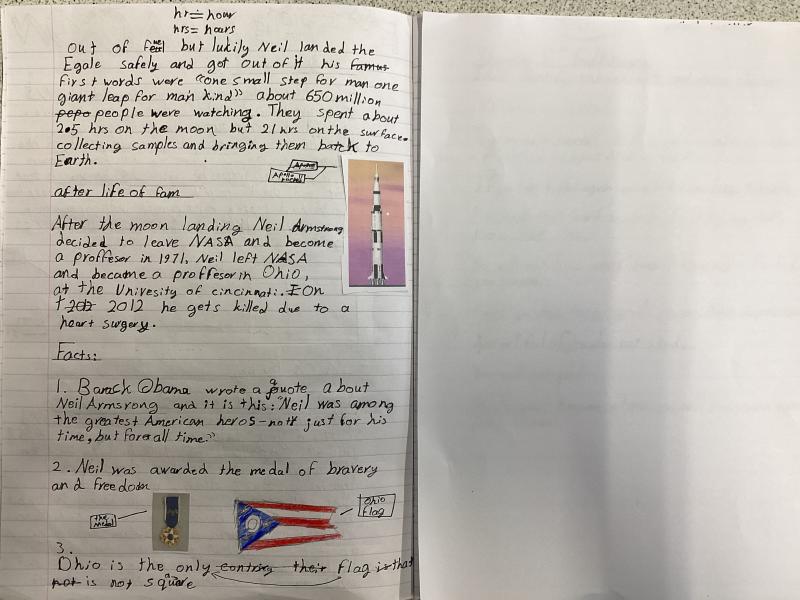 hr = hour
hrs = hours
out of fuel but lukily Neil landed the
Egale safely and got out of it his famus
first words were "one small step for man one
giant leap for man kind" about 650 million
pepo people were watching. They spent about
2.5 hrs on the moon but 21 hrs on the surface.
collecting samples and bringing them back to
Earth.
Apollo
after life of fam
After the moon landing Neil Armstrong
decided to leave NASA and become
a proffesor in 1971, Neil left NASA
and became a proffesor in Ohio,
at the Univesity of cincinnati. On
2012 he gets killed due to a
heart surgery.
Facts:
1. Barack Obama wrote a quote about
Neil Armsrong and it is this: "Neil was among
the greatest American heros - not just for his
time, but for all time."
2. Neil was awarded the medal of bravery
and freedom
the medal
Ohio flag
3.
Ohio is the only contriy their flag is that
not is not square